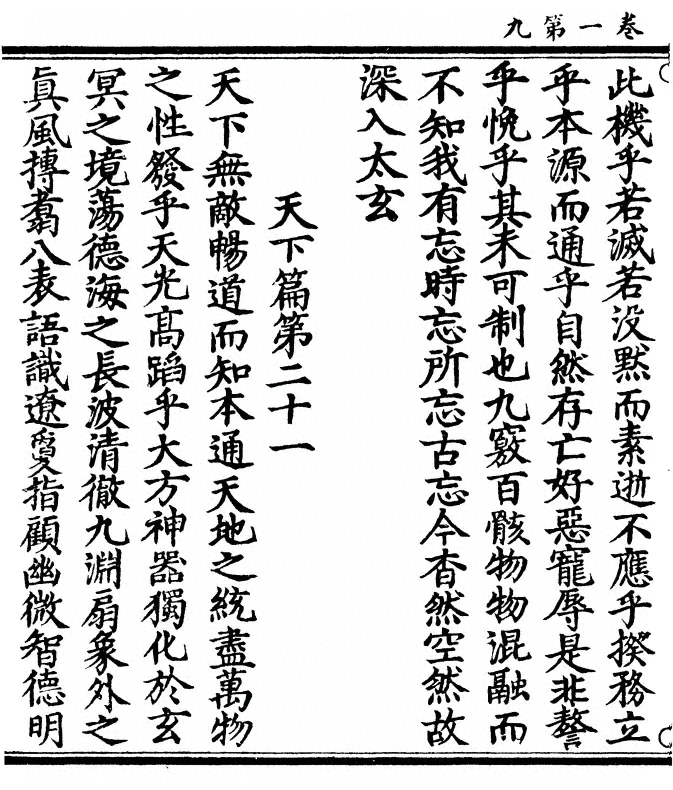 卷一第九
此機乎若滅若没黙而素逝不應乎揆務立
乎本源而通乎自然存亡好惡寵辱是非謷
乎悗乎其未可制也九竅百骸物物混融而
不知我有忘時忘所忘古忘今杳然空然故
深入太玄
天下篇第二十一
天下無敵暢道而知本通天地之統盡萬物
之性發乎天光髙蹈乎大方神器獨化於玄
冥之境蕩德海之長波清徹九淵扇象外之
眞風摶翥八表語識遼敻指顧幽微智德明